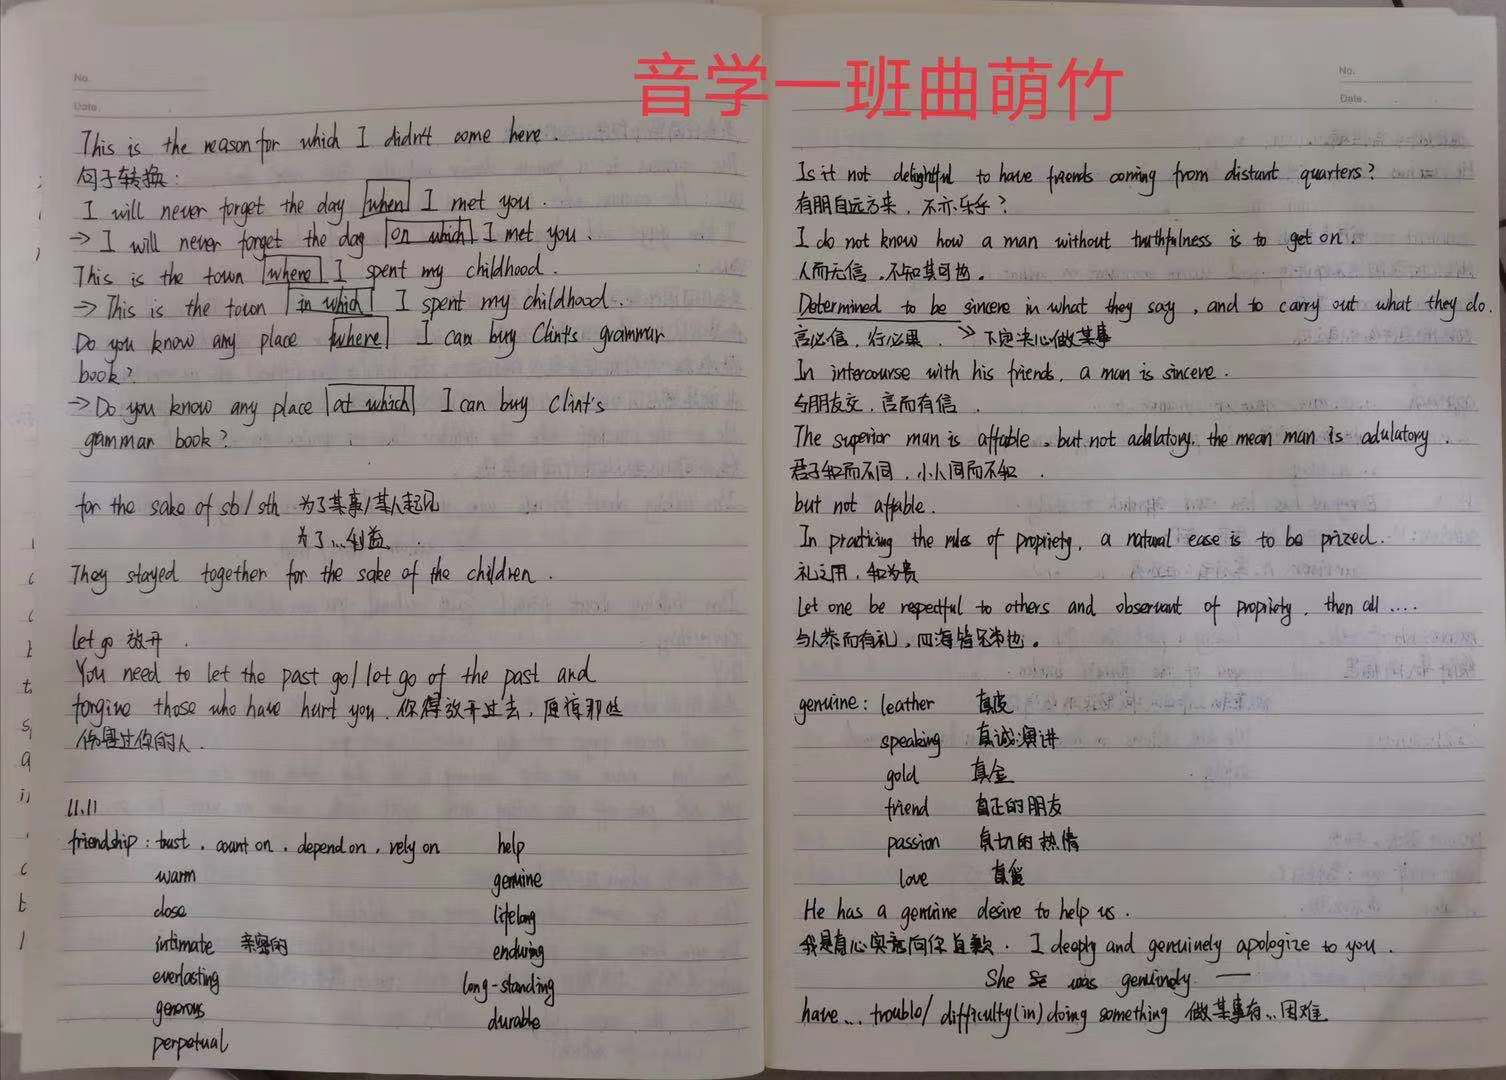 音学一班曲萌竹
No.
Date.
This is the reason for which I didn't come here.
句子转换:
I will never forget the day when I met you.
→ I will never forget the day on which I met you.
This is the town where I spent my childhood.
→ This is the town in which I spent my childhood.
Do you know any place where I can buy Clint's grammar
book?
→ Do you know any place at which I can buy Clint's
grammar book?
for the sake of sb/sth 为了某事/某人起见
为了...利益.
They stayed together for the sake of the children.
let go 放开.
You need to let the past go/let go of the past and
forgive those who have hurt you. 你得放开过去,原谅那些
伤害过你的人.
11.11
friendship: trust. count on. depend on. rely on help
warm genuine
close lifelong
intimate 亲密的 enduring
everlasting long-standing
generous durable
perpetual
No.
Date.
Is it not delightful to have friends coming from distant quarters?
有朋自远方来,不亦乐乎?
I do not know how a man without truthfulness is to get on.
人而无信,不知其可也。
Determined to be sincere in what they say, and to carry out what they do.
言必信,行必果. → 下定决心做某事
In intercourse with his friends, a man is sincere.
与朋友交,言而有信.
The superior man is affable, but not adulatory. the mean man is adulatory.
君子和而不同,小人同而不和.
but not affable.
In practicing the rules of propriety, a natural ease is to be prized.
礼之用,和为贵
Let one be respectful to others and observant of propriety, then all ....
与人恭而有礼,四海皆兄弟也。
genuine: leather 真皮
speaking 真诚演讲
gold 真金
friend 真正的朋友
passion 真切的热情
love 真爱
He has a genuine desire to help us.
我是真心实意向你道歉. I deeply and genuinely apologize to you.
She was genuinely —
have... trouble/difficulty(in)doing something 做某事有...困难